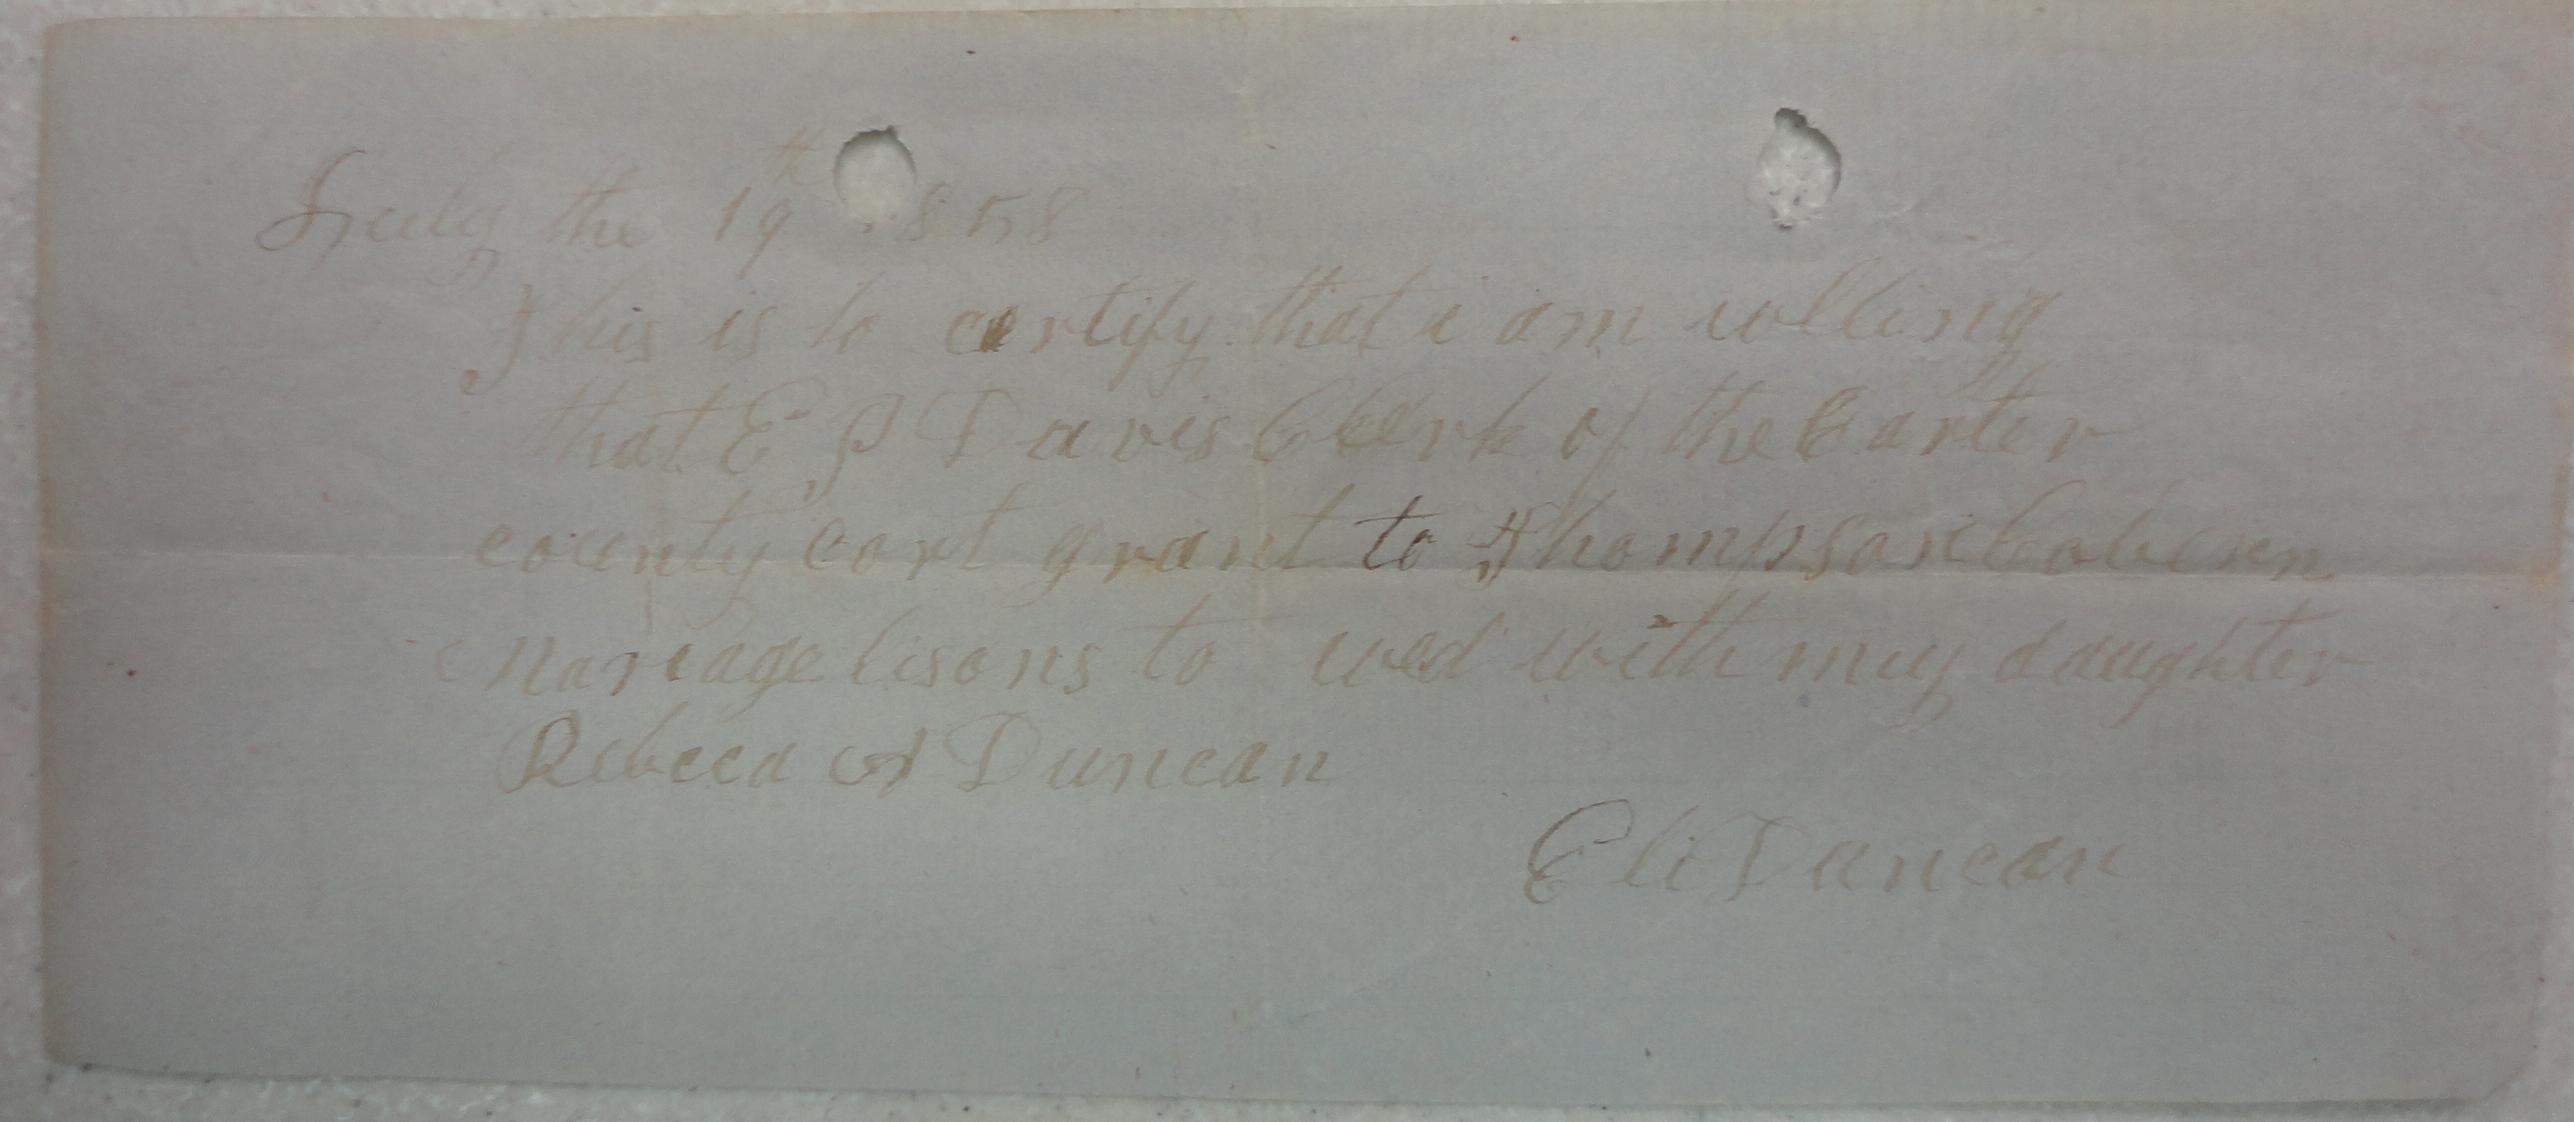 July the 19th 1858
This is to certify that i am wlling
that E P Davis Clerk of the Carter
county cort grant to Thompson Coburn
mariage lisons to wed with my daughter
Rebeca A Duncan
Eli Duncan